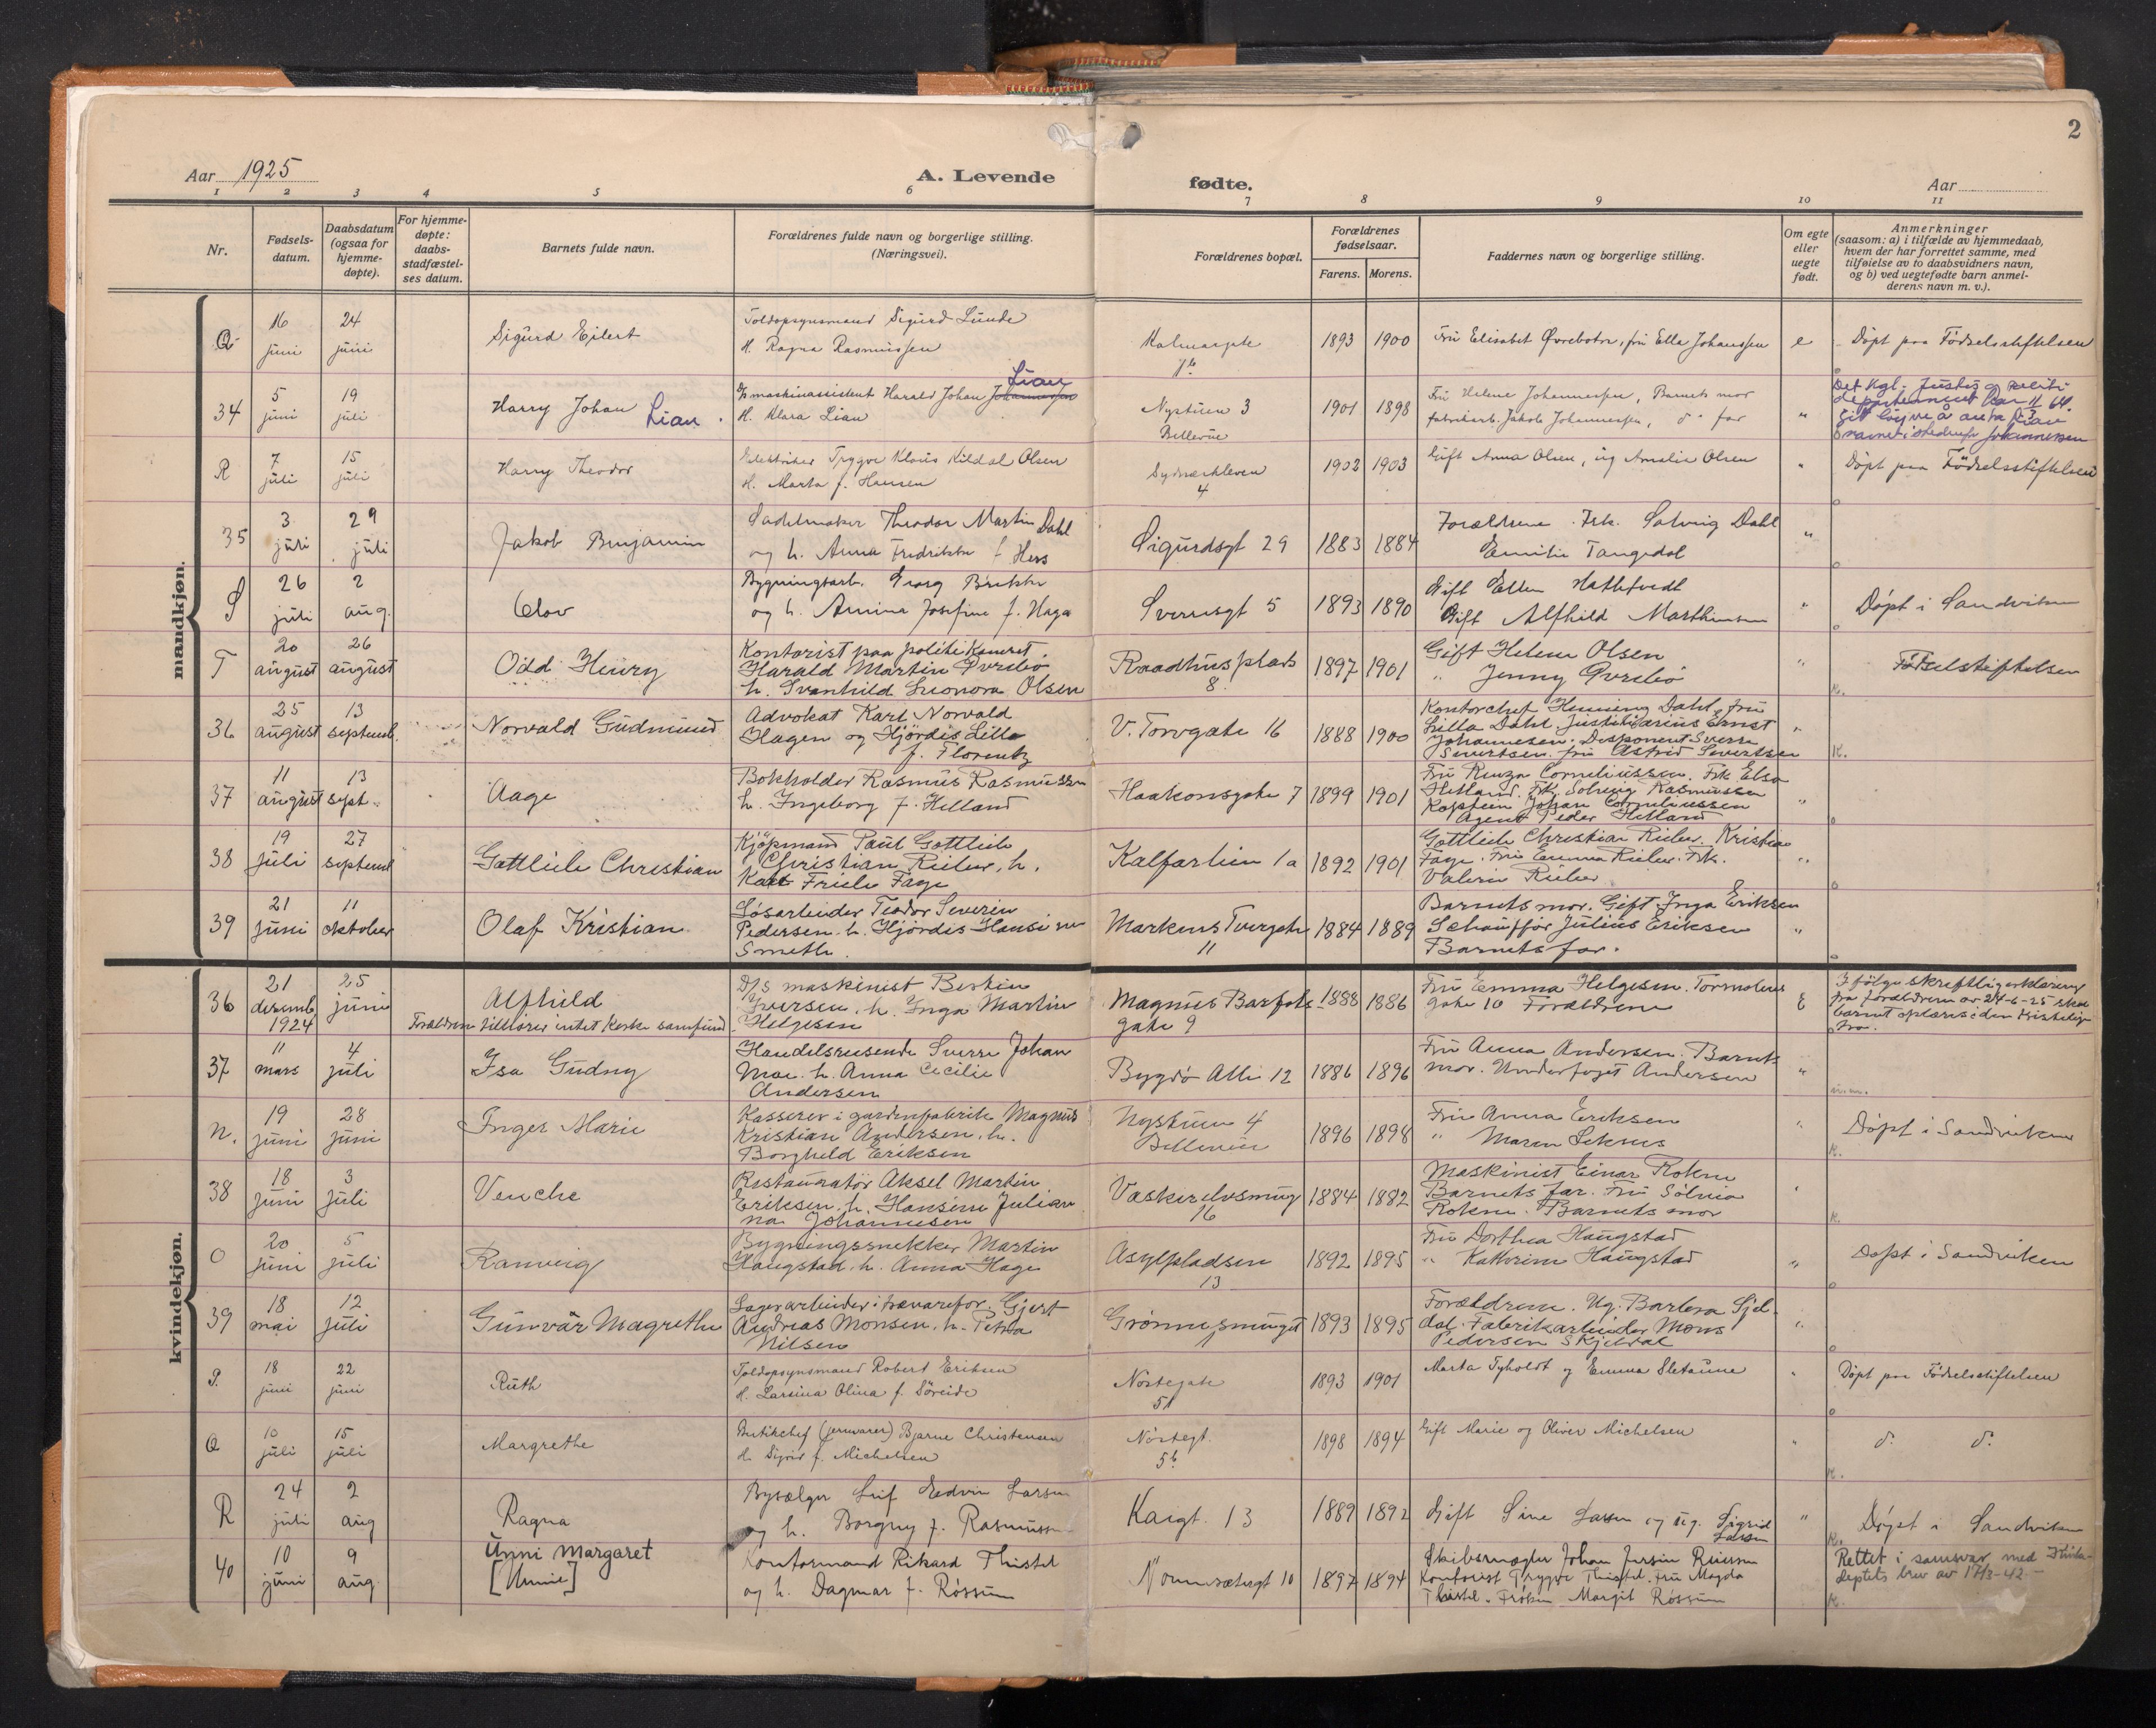 2
Aar 1925
A. Levende fødte.
Aar
1 2 3 4 5 6 7 8 9 10 11
Nr.
Fødsels-
datum.
Daabsdatum
(ogsaa for
hjemme-
døpte).
For hjemme-
døpte:
daabs-
stadfæstel-
ses datum.
Barnets fulde navn.
Forældrenes fulde navn og borgerlige stilling.
(Næringsvei).
Forældrenes bopæl.
Forældrenes
fødselsaar.
Farens. Morens.
Faddernes navn og borgerlige stilling.
Om egte
eller
uegte
født.
Anmerkninger
(saasom: a) i tilfælde av hjemmedaab,
hvem der har forrettet samme, med
tilføielse av to daabsvidners navn,
og b) ved uegtefødte barn anmel-
derens navn m. v.).
mandkjøn.
Q 16 juni 24 juni Sigurd Eilert
Toldopsynsmand Sigurd Lunde
H. Ragna Rasmussen
1893 1900 Fru Elisabet Øvrebotn, fru Ella Johanssen e Døpt paa Fødselsstiftelsen
34 5 juni 19 juli Harry Johan Lian.
maskinassistent Harald Johan Johannessen Lian
H. Klara Lian
Nystuen 3
Bellevue
1901 1898
Fru Helene Johannessen, Barnets mor
fabrikarb. Jakob Johannessen, d° far
"
Det Kgl. Justis og politi
departement har 11
git løyve å anta Lian
navnet istedenfor Johannessen
R 7 juli 15 juli Harry Theodor
Elektriker Trygve Klaus Kildal Olsen
H. Marta f. Hansen
4
1902 1903 Gift Anna Olsen, ug Amalie Olsen " Døpt paa Fødselsstiftelsen
35 3 juli 29 juli Jakob Benjamin
Sadelmaker Theodor Martin Dahl
og h. Anna Fredrikke f Hess
Sigurdsgt 29 1883 1884
Forældrene. Frk. Solveig Dahl
Emilie Tangedal
"
S 26 juli 2 aug. Olov
Bygningsarb. Georg Brekke
og h. Amina Josefine f. Haga
Sverresgt 5 1893 1890
Gift Ellen Hatlestvedt
Gift Alfhild Marthinsen
" Døpt i Sandviken
T 20 august 26 august Odd Henry
Kontorist paa politikamret.
Harald Martin Øvrebö
h. Svanhild Leonora Olsen
Raadhusplads
8.
1897 1901
Gift Helene Olsen
" Jenny Øvrebö
" Födselstiftelsen
K.
36 25 august 13 septemb. Norvald Gudmund
Advokat Karl Norvald
Hagen og Hjördis Lilla
f. Florentz
V. Torvgate 16 1888 1900
Kontorchef Henning Dahl, fru
Lilla Dahl. Justitiarius Ernst
Johannesen. Disponent Sverre
Sivertsen. fru Astrid Sivertsen
"
K.
37 11 august 13 sept. Aage
Bokholder Rasmus Rasmussen
h. Ingeborg f. Helland
Haakonsgate 7 1899 1901
Fru Renza Corneliussen. Frk Elsa
Hetland. Frk. Solveig Rasmussen
Kaptein Johan Corneliussen
Agent Peder Hetland
"
38 19 juli 27 septemb Gottlieb Christian
Kjöpmand Paul Gottlieb
Christian Rieber, h.
Friele Faye
Kalfarlien 1a 1892 1901
Gottlieb Christian Rieber. Kristian
Faye. Fru Emma Rieber. Frk.
Valerie Rieber
"
39 21 juni 11 oktober Olaf Kristian
Løsarbeider Teodor Severin
Pedersen. h. Hjördis Hansine
Smeth.
Markens Tvergate
11
1884 1889
Barnets mor. Gift Inga Eriksen
Schauffør Julius Eriksen
Barnets far.
"
kvindekjøn.
36 21 desemb 1924 25 juni Alfhild
Forældrene tilhører intet kirke samfund
D/S maskinist Bertin
Iversen. h. Inga Martin
Helgesen
Magnus Barfots
gate 9
1888 1886
Fru Emma Helgesen. Tormodens
gate 10 Forældrene
E
Ifölge skreftlig erklæring
fra forældrene av 24-6-25 skal
barnet oplæres i den kristelige
tro.
37 11 mars 4 juli Isa Gudny
Handelsreisende Sverre Johan
Moe. h. Anna Cecilie
Andersen
Bygdö Alle 12 1886 1896
Fru Anna Andersen. Barnets
mor. Underfoget Andersen
"
N. 19 juni 28 juni Inger Marie
Kasserer i gardinfabrik Magnus
Kristian Andersen. h.
Borghild Eriksen
Nystuen 4
Bellevue
1896 1898
Fru Anna Eriksen
" Maren Seknes
" Døpt i Sandviken
K.
38 18 juni 3 juli Venche
Restauratör Aksel Martin
Eriksen. h. Hansine Julian
na Johannesen
Vaskerelvsmug
16
1884 1882
Maskinist Einar Rokne
Barnets far. Fru Solma
Rokne. Barnets mor
"
K.
O 20 juni 5 juli Ranveig
Bygningssnekker Martin
Haugstad. h. Anna Hage
Asylpladsen
13
1892 1895
Fru Dorthea Haugstad
" Kathrine Haugstad
" Døpt i Sandviken
39 18 mai 12 juli Gunvär Magrethe
Lagerarbeider i trævarefor. Gjert
Andreas Monsen. h. Petra
Nilsen
Grønnesmuget
1
1893 1895
Forældrene. Ug. Barbra Sjel-
dal. Fabrikarbeider Mons
Pedersen Skjeldal
"
P. 18 juni 22 juni Ruth
Toldopsynsmand Robert Eriksen
H. Larsina Olina f. Söreide
Nöstegate
51
1893 1901 Marta Tyholdt og Emma Sletaune " Døpt paa Fødselsstiftelsen
Q 10 juli 15 juli Margrethe
Butikchef (jernvarer) Bjarne Christensen
H. Sigrid f. Michelsen
Nöstegt.
5b
1898 1894 Gift Marie og Oliver Michelsen " d°. d°.
K.
R 24 juli 2 aug Ragna
Bysælger Leif Edvin Larsen
og h. Borgny f. Rasmussen
Kaigt. 13 1889 1892
Gift Sine Larsen og ug. Sigrid
Larsen
" Døpt i Sandviken
K.
40 10 juni 9 aug. Unni Margaret
[Unni]
Kontormand Rikard Thistel
og h. Dagmar f. Røssum
Nonnesætergt 10 1897 1894
Skibsmægler Johan Jersin
Kontorist Trygve Thistel. Fru Magda
Thistel. Frøken Margit Røssum
Rettet i samsvar med Kirke-
deptets brev av 17/3-42-
K.